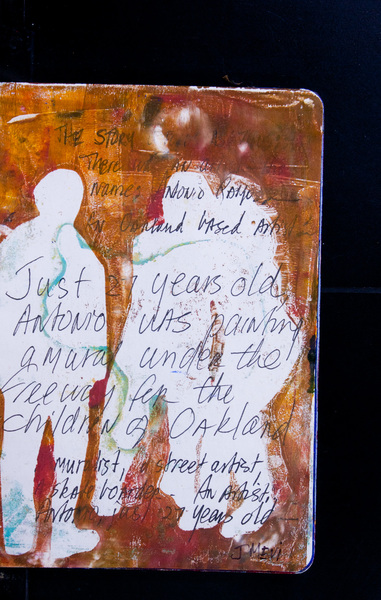 THE STORY
There was an a
name: Antonio Ramos
An Oakland based Artist
Just 27 years old,
ANTONIO WAS painting
a mural under the
freeway for the
children of OAKland
muralist, street artist,
skateboarder - An Artist,
Antonio, just 27 years old